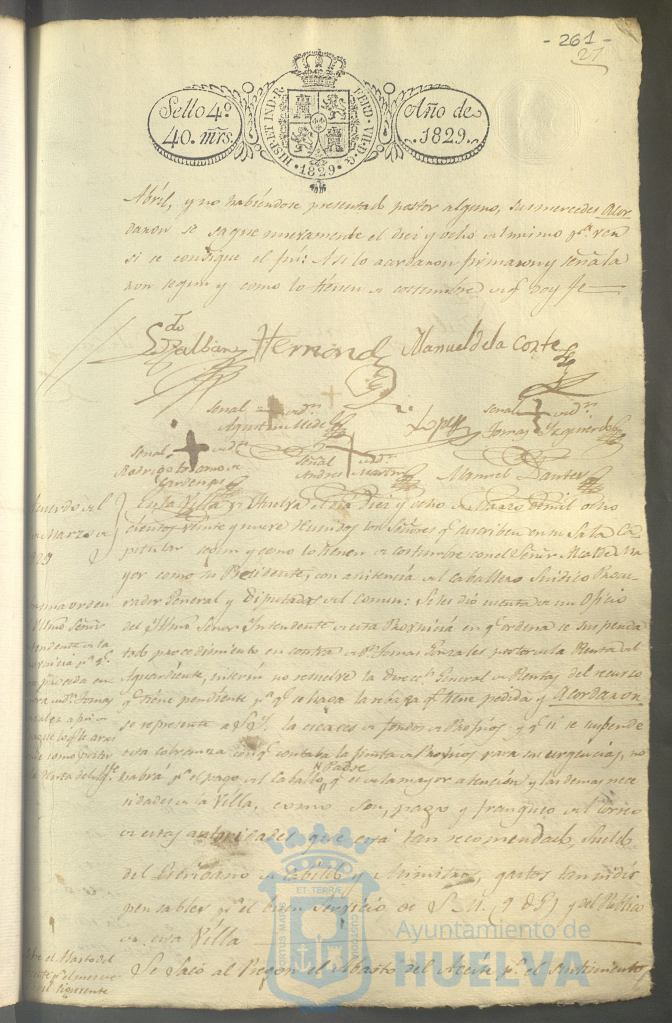 - 261 -
27
Sello 4º
40. mrs.
HISP. ET IND. R. FERD. VII. D. G.
1829
Año de
1829.
Abril, y no habiendose presentado postor alguno, sus mercedes Acor
daron se saque nuevamente el diez y ocho del mismo pª ver
si se consigue el fin: Asi lo acordaron firmaron y señala
ron segun y como lo tienen de costumbre de qe doy fe
Hernand Manuel de la Corte
señal
señal
Agustin
Lopez
Tomas Izquierdo
señal
señal
Rodrigo
Cardenas
Andres Martin
Manuel Santos
En la Villa de Huelva el dia Diez y ocho de Marzo de mil ocho
cientos veinte y nueve reunidos los Señores qe suscriben en su Sala Ca
pitular segun y como lo tienen de costumbre con el Señor Alcalde Ma
yor como su Presidente, con asistencia del Caballero Sindico Procu
rador General y Diputados del comun: Se les dió cuenta de un Oficio
del Yllmo Señor Intendente de esta Provincia en qe ordena se suspenda
todo procedimiento en contra de Dn Tomas Gonzales postor de la Renta del
Aguardiente, interin no resuelve la Direccn General de Rentas del recurso
qe tiene pendiente pª qe se haga la rebaja qe tiene pedida y Acordaron
se represente a S.S. la escases de fondos de Propios y qe si se suspende
esta cobranza con qe contaba la Junta de Propios para sus urgencias, no
habrá pª el pago del Caballo Padre qe es de la mayor atencion y las demas nece
sidades de la Villa, como son, pago y franqueo del correo
de estas autoridades que está tan recomendado, sueldo
del Escribano de Cabildo y Ministros, gastos tan indis
pensables pª el buen Servicio de S. M. y del Publico
de esta Villa
Se sacó al Pregon el Abasto del Aceite pª el Surtimiento
Acuerdo del
de Marzo de
orden
Yllmo Señor
Intendente de la
Provincia pª qe
Tomas
como postor
Renta del
el Abasto del
siguiente
ET TERRÆ
PORTUS MARIS
CUSTODIA
Ayuntamiento de
HUELVA